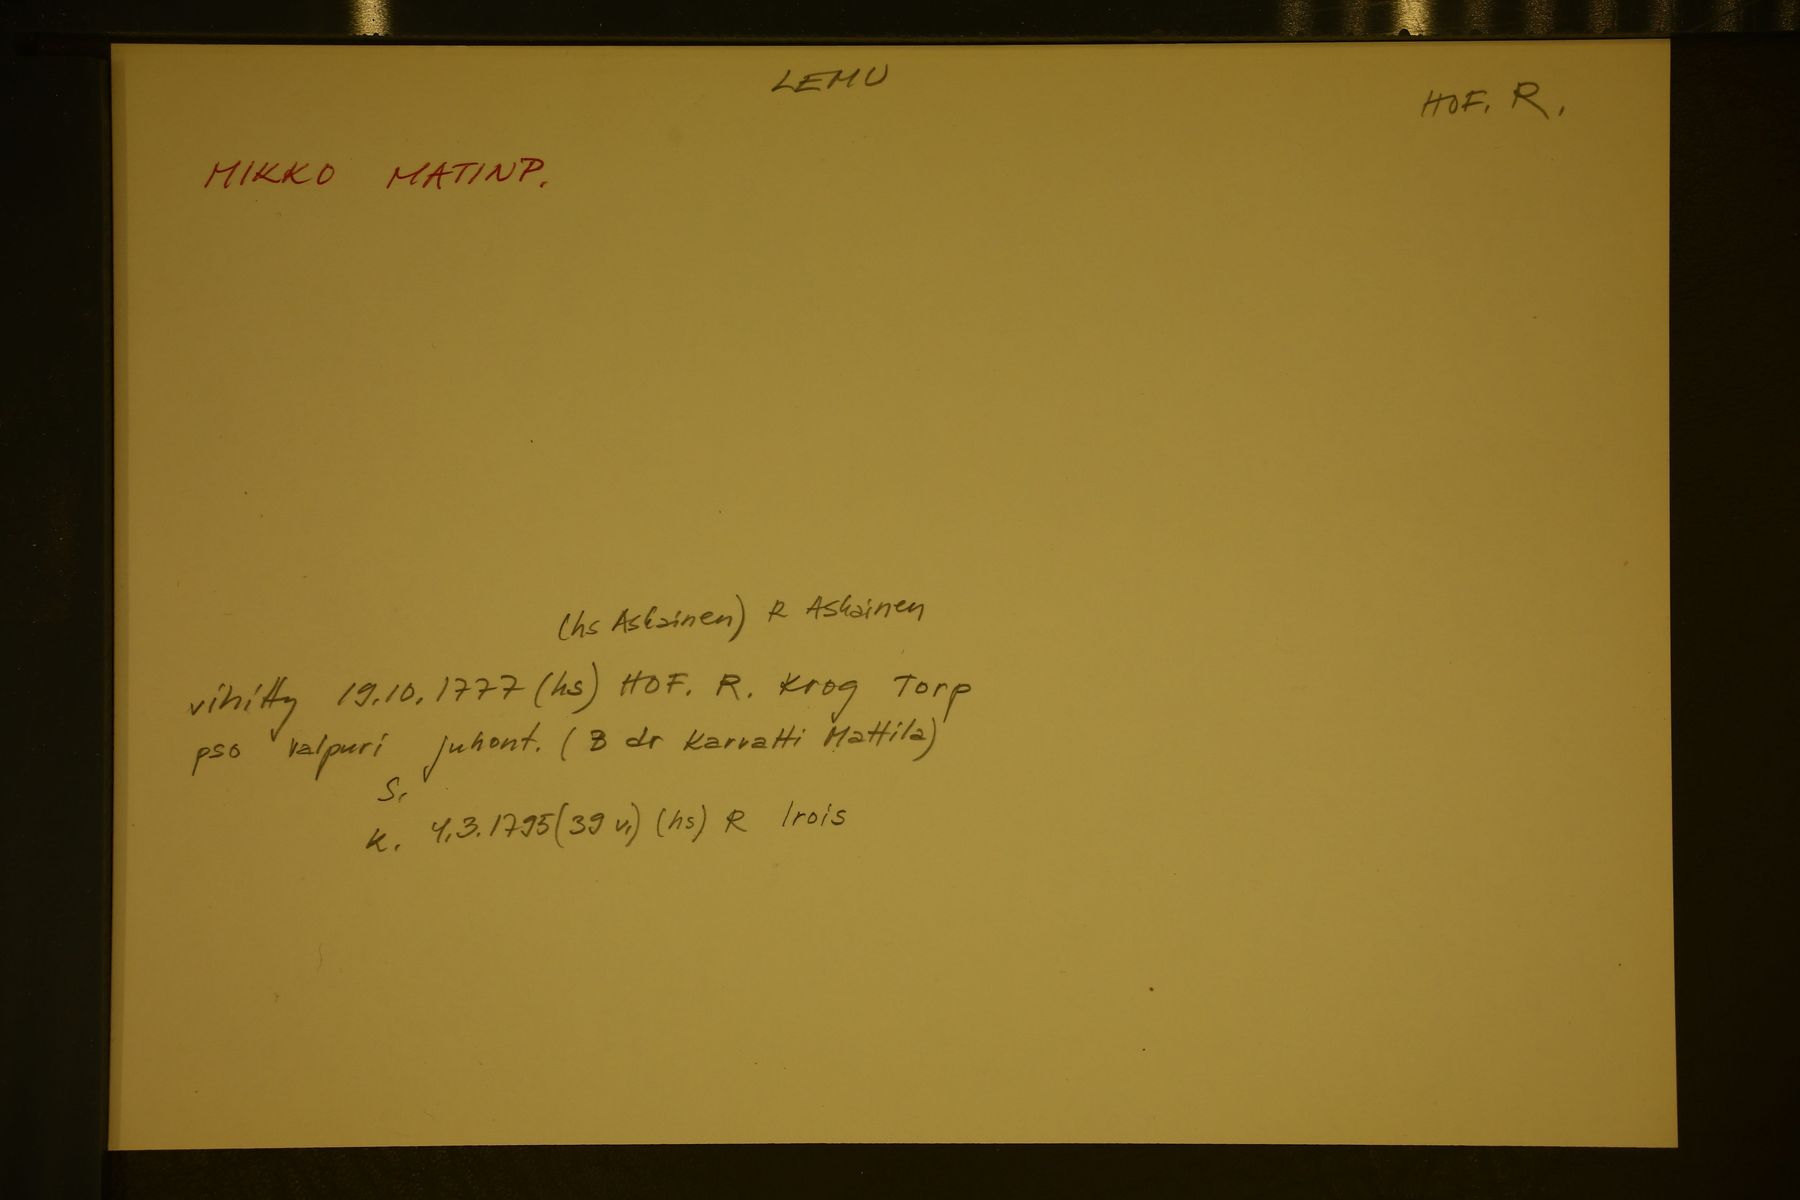 LEMU
HOF. R.
MIKKO MATINP.
(hs Askainen) R Askainen
vihitty 19.10.1777 (hs) HOF. R. Krog Torp
pso Valpuri Juhont. (B dr Karvatti Mattila)
S.
K. 4.3.1795 (39 v.) (hs) R Irois